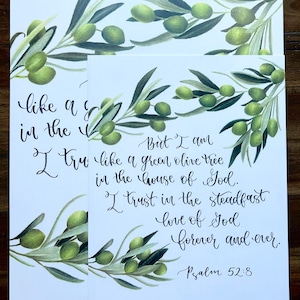 like a g
in the
I tru
But I am
like a green olive tree
in the house of God.
I trust in the steadfast
love of God
forever and ever.
Psalm 52:8